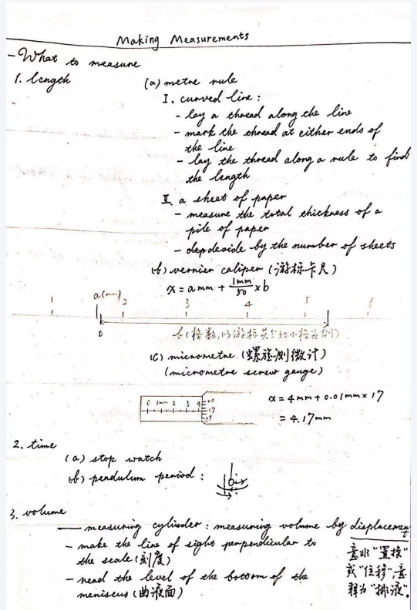 Making Measurements
- What to measure
1. length
(a) metre rule
I. curved line:
- lay a thread along the line
- mark the thread at either ends of
the line
- lay the thread along a rule to find
the length
II. a sheet of paper
- measure the total thickness of a
pile of paper
- devide by the number of sheets
(b) vernier caliper (游标卡尺)
x = a mm + 1mm/50 × b
a(mm)
2 3 4 5 6
0
b(格数,以游标共50小格为例)
(c) micrometre (螺旋测微计)
(micrometre screw gauge)
0 1mm 2 3 4
20
17
15
x = 4mm + 0.01mm × 17
= 4.17mm
2. time
(a) stop watch
(b) pendulum period:
3. volume
— measuring cylinder: measuring volume by displacement
- make the line of sight perpendicular to
the scale (刻度)
- read the level of the bottom of the
meniscus (曲液面)
意非"置换"
或"位移",意
译为"排液".